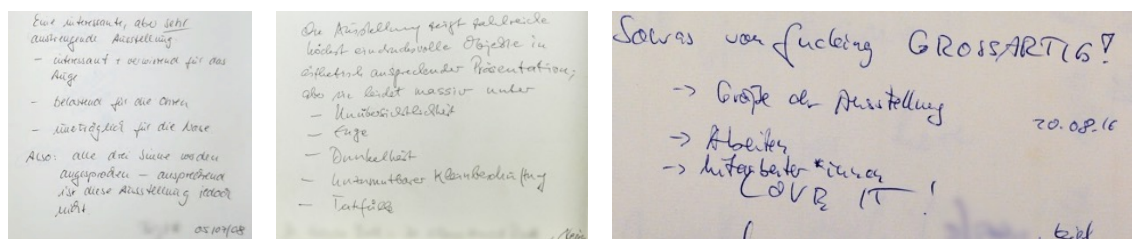 Eine interessante, aber sehr
anstrengende Ausstellung.
- interessant + verwirrend für das
Auge
- belastend für die Ohren
- unerträglich für die Nase
Also: alle drei Sinne werden
angesprochen – ansprechend
ist diese Ausstellung jedoch
nicht.
05/07/08
Die Ausstellung zeigt zahlreiche
höchst eindrucksvolle Objekte in
ästhetisch ansprechender Präsentation;
aber sie leidet massiv unter
- Unübersichtlichkeit
- Enge
- Dunkelheit
- Kleinbeschriftung
Sowas von fucking GROSSARTIG!
-> Größe der Ausstellung
20.08.16
-> Arbeiten
-> Mitarbeiter*innen
LOVE IT!